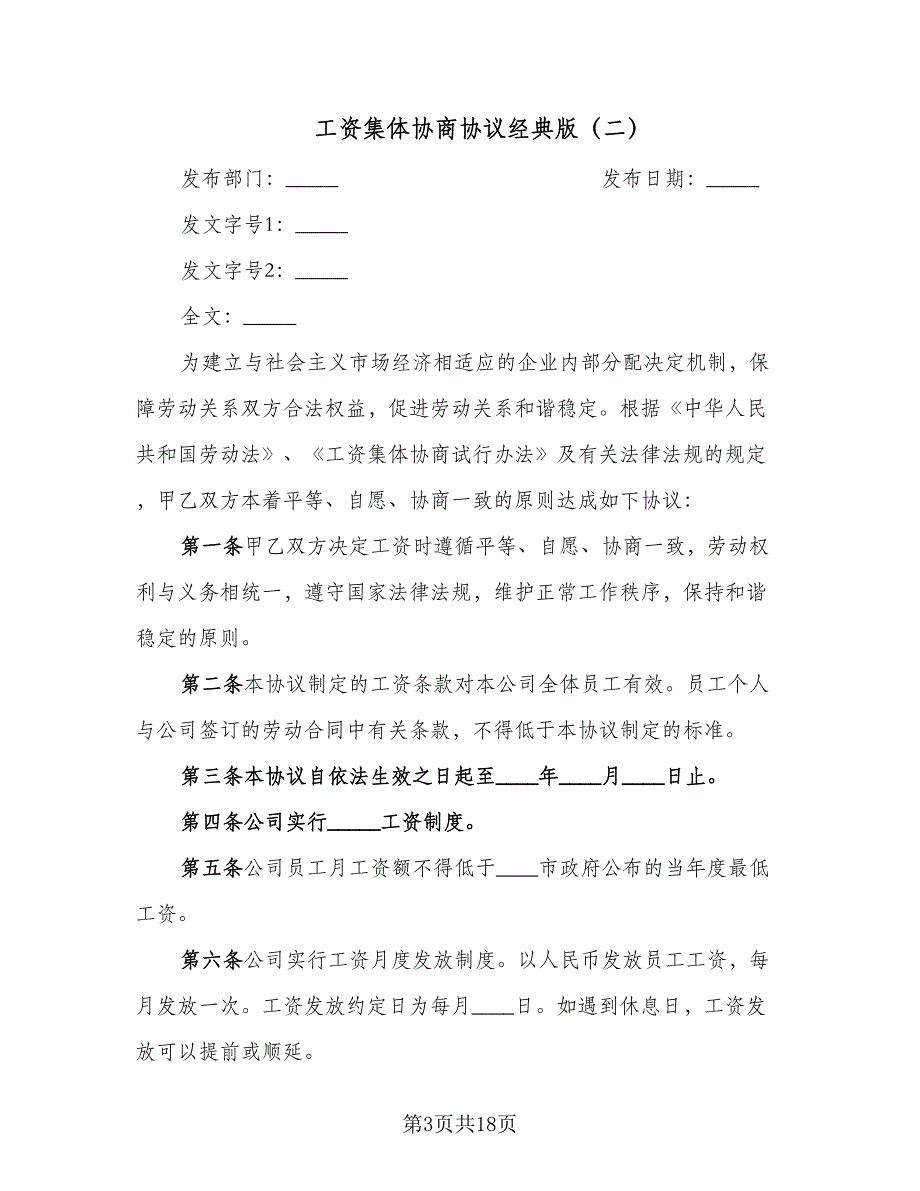 工资集体协商协议经典版（二）
发布部门：_____ 发布日期：_____
发文字号1：_____
发文字号2：_____
全文：_____
为建立与社会主义市场经济相适应的企业内部分配决定机制，保
障劳动关系双方合法权益，促进劳动关系和谐稳定。根据《中华人民
共和国劳动法》、《工资集体协商试行办法》及有关法律法规的规定
，甲乙双方本着平等、自愿、协商一致的原则达成如下协议：
第一条甲乙双方决定工资时遵循平等、自愿、协商一致，劳动权
利与义务相统一，遵守国家法律法规，维护正常工作秩序，保持和谐
稳定的原则。
第二条本协议制定的工资条款对本公司全体员工有效。员工个人
与公司签订的劳动合同中有关条款，不得低于本协议制定的标准。
第三条本协议自依法生效之日起至____年____月____日止。
第四条公司实行_____工资制度。
第五条公司员工月工资额不得低于____市政府公布的当年度最低
工资。
第六条公司实行工资月度发放制度。以人民币发放员工工资，每
月发放一次。工资发放约定日为每月____日。如遇到休息日，工资发
放可以提前或顺延。
第3页共18页